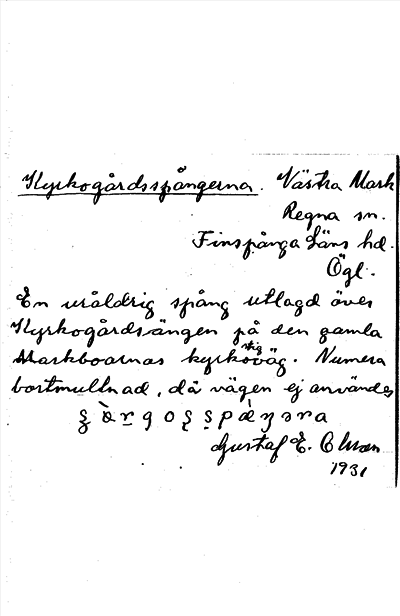 Kyrkogårdsspångerna. Västra Mark
Regna sn.
Finspånga Läns hd.
Ögl.
En uråldrig spång utlagd över
Kyrkogårdsängen på den gamla
Markboarnas kyrkoväg. Numera
stig
bortmultnad, då vägen ej användes
Gustaf E. Olsson
1931